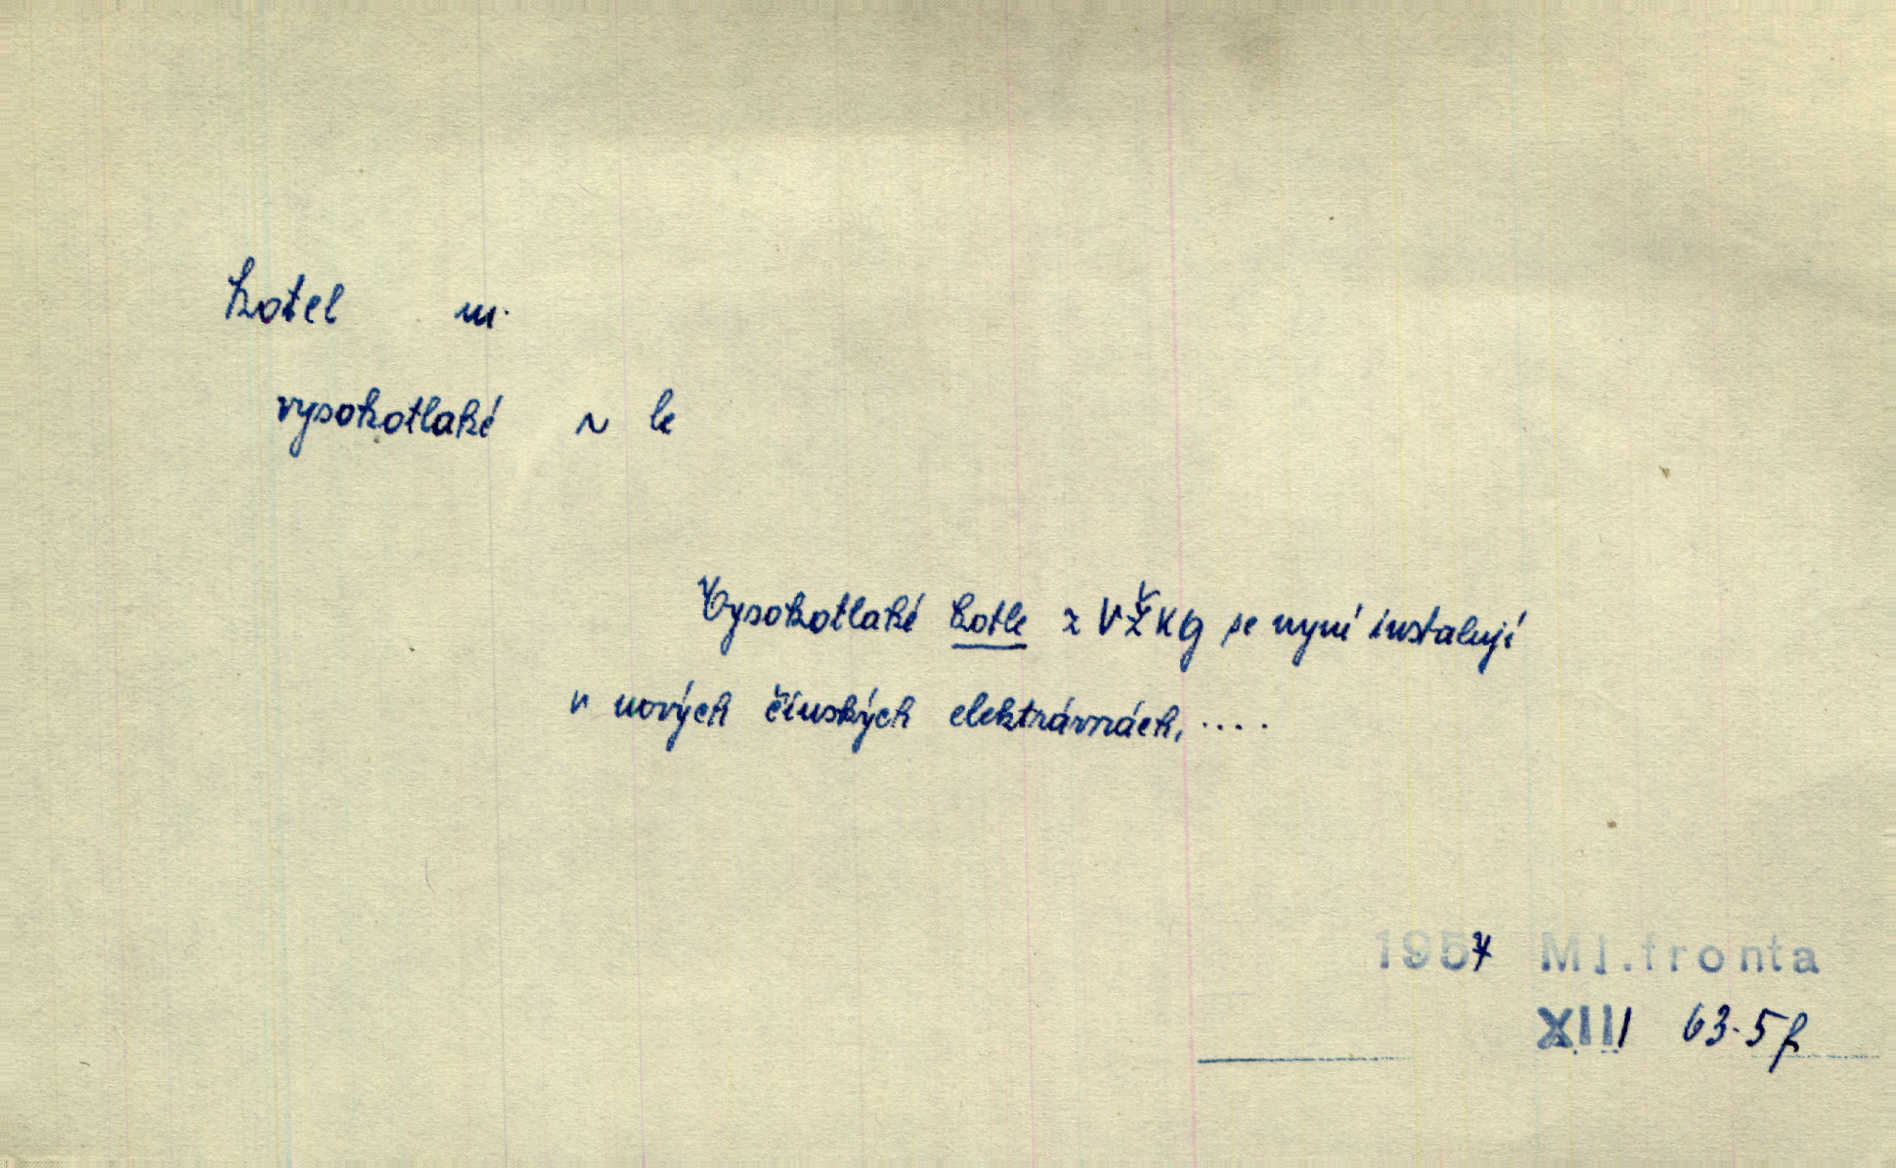 kotel m.
vysokotlaké ~ le
Vysokotlaké kotle z VŽKG se nyní instalují
v nových čínských elektrárnách, ....
1957 Ml.fronta
XIII 63.5f